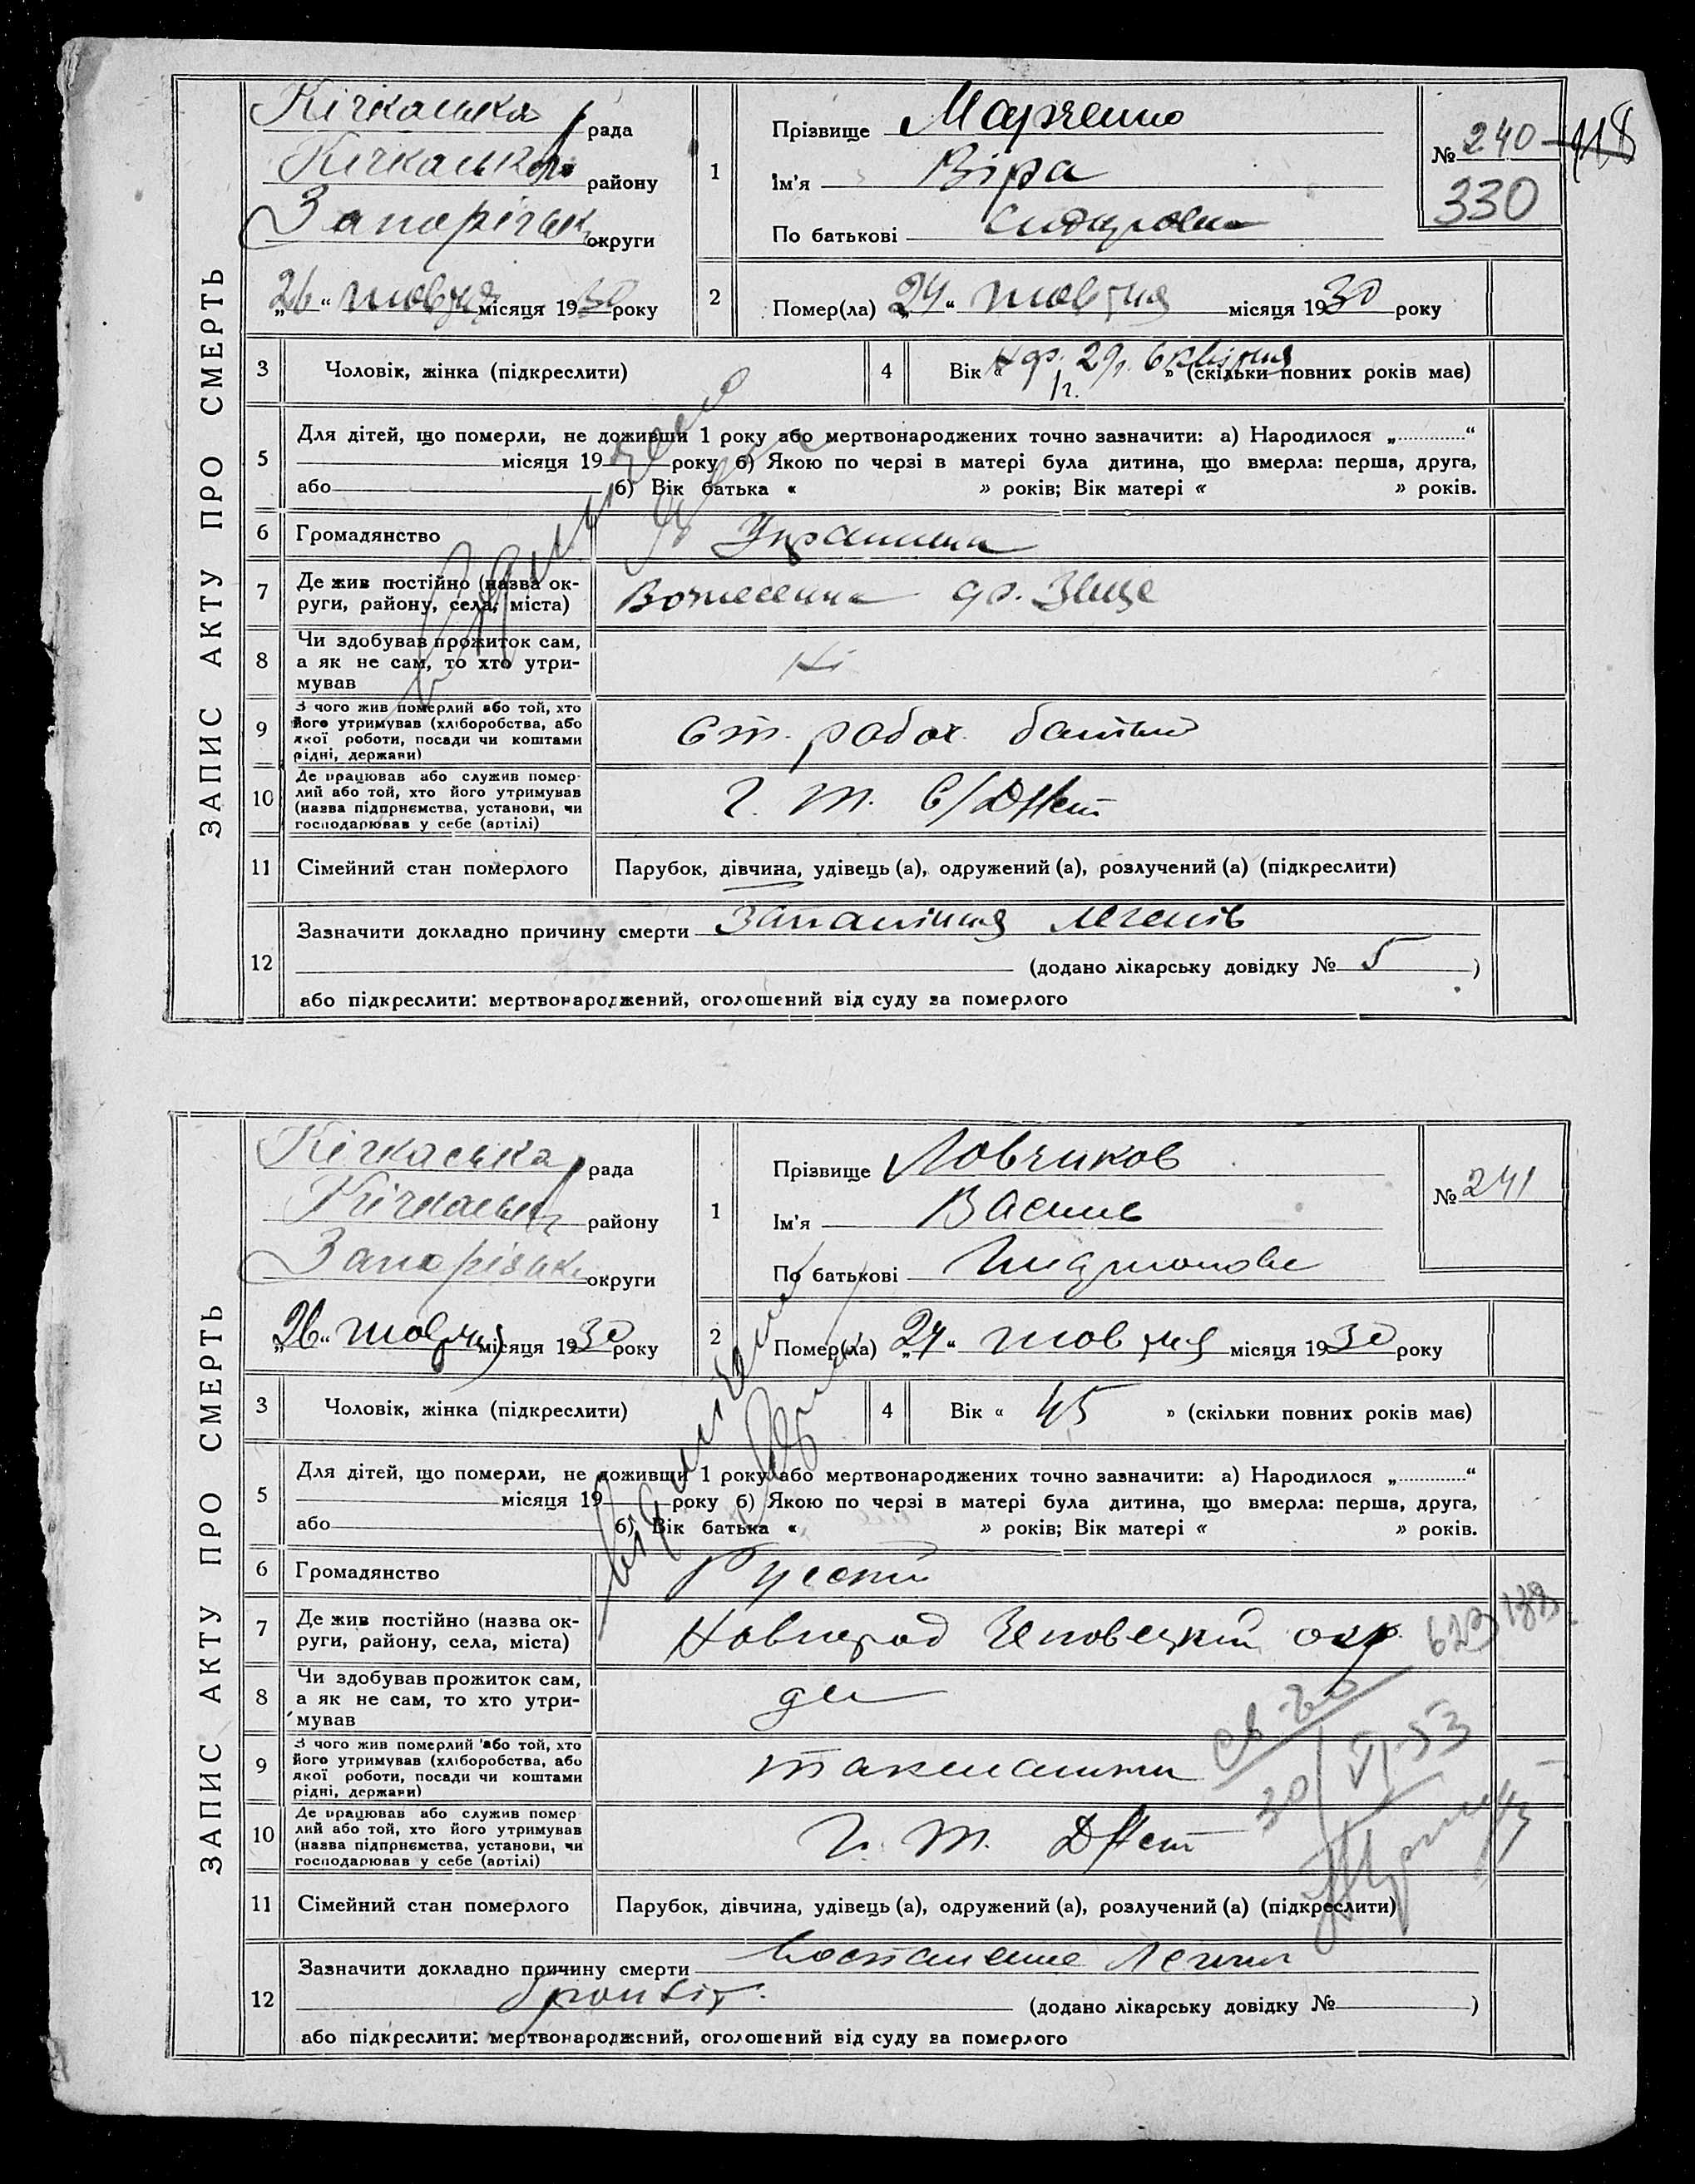 ЗАПИС АКТУ ПРО СМЕРТЬ
Кічкаська рада
Кічкаськ району
Запорізьк округи
„26“ жовтня місяця 1930 року
1
Прізвище Марченко
Ім'я Віра
По батькові Сидоровна
№ 240 118
330
2
Помер(ла) „24“ жовтня місяця 1930 року
3 Чоловік, жінка (підкреслити)
4 Вік « » (скільки повних років має)
1г.
5
Для дітей, що померли, не доживши 1 року або мертвонароджених точно зазначити: а) Народилося „.............“
місяця 19 року б) Якою по черзі в матері була дитина, що вмерла: перша, друга,
або б) Вік батька « » років; Вік матері « » років.
6 Громадянство Украинка
7 Де жив постійно (назва ок-
руги, району, села, міста) Вознесенка
8 Чи здобував прожиток сам,
а як не сам, то хто утри-
мував Ні
9 З чого жив померлий або той, хто
його утримував (хліборобства, або
якої роботи, посади чи коштами
рідні, держави) Ст. рабоч. батько
10 Де працював або служив помер-
лий або той, хто його утримував
(назва підприємства, установи, чи
господарював у себе (артілі) Г. Т.
11 Сімейний стан померлого Парубок, дівчина, удівець (а), одружений (а), розлучений (а) (підкреслити)
12
Зазначити докладно причину смерти Запаління легенів
(додано лікарську довідку № 5 )
або підкреслити: мертвонароджений, оголошений від суду за померлого
ЗАПИС АКТУ ПРО СМЕРТЬ
Кічкаська рада
Кічкаськ району
Запорізьк округи
„26“ жовтня місяця 1930 року
1
Прізвище Ловчиков
Ім'я Васил
По батькові
№ 241
2
Помер(ла) „24“ жовтня місяця 1930 року
3 Чоловік, жінка (підкреслити)
4 Вік « 45 » (скільки повних років має)
5
Для дітей, що померли, не доживши 1 року або мертвонароджених точно зазначити: а) Народилося „.............“
місяця 19 року б) Якою по черзі в матері була дитина, що вмерла: перша, друга,
або б) Вік батька « » років; Вік матері « » років.
6 Громадянство Русский
7 Де жив постійно (назва ок-
руги, району, села, міста) Новгород окр.
8 Чи здобував прожиток сам,
а як не сам, то хто утри-
мував да
9 З чого жив померлий або той, хто
його утримував (хліборобства, або
якої роботи, посади чи коштами
рідні, держави)
10 Де працював або служив помер
лий або той, хто його утримував
(назва підприємства, установи, чи
господарював у себе (артілі) Г. Т.
11 Сімейний стан померлого Парубок, дівчина, удівець (а), одружений (а), розлучений (а) (підкреслити)
12
Зазначити докладно причину смерти Воспаление Легких
бронхіт.
(додано лікарську довідку № )
або підкреслити: мертвонароджений, оголошений від суду за померлого